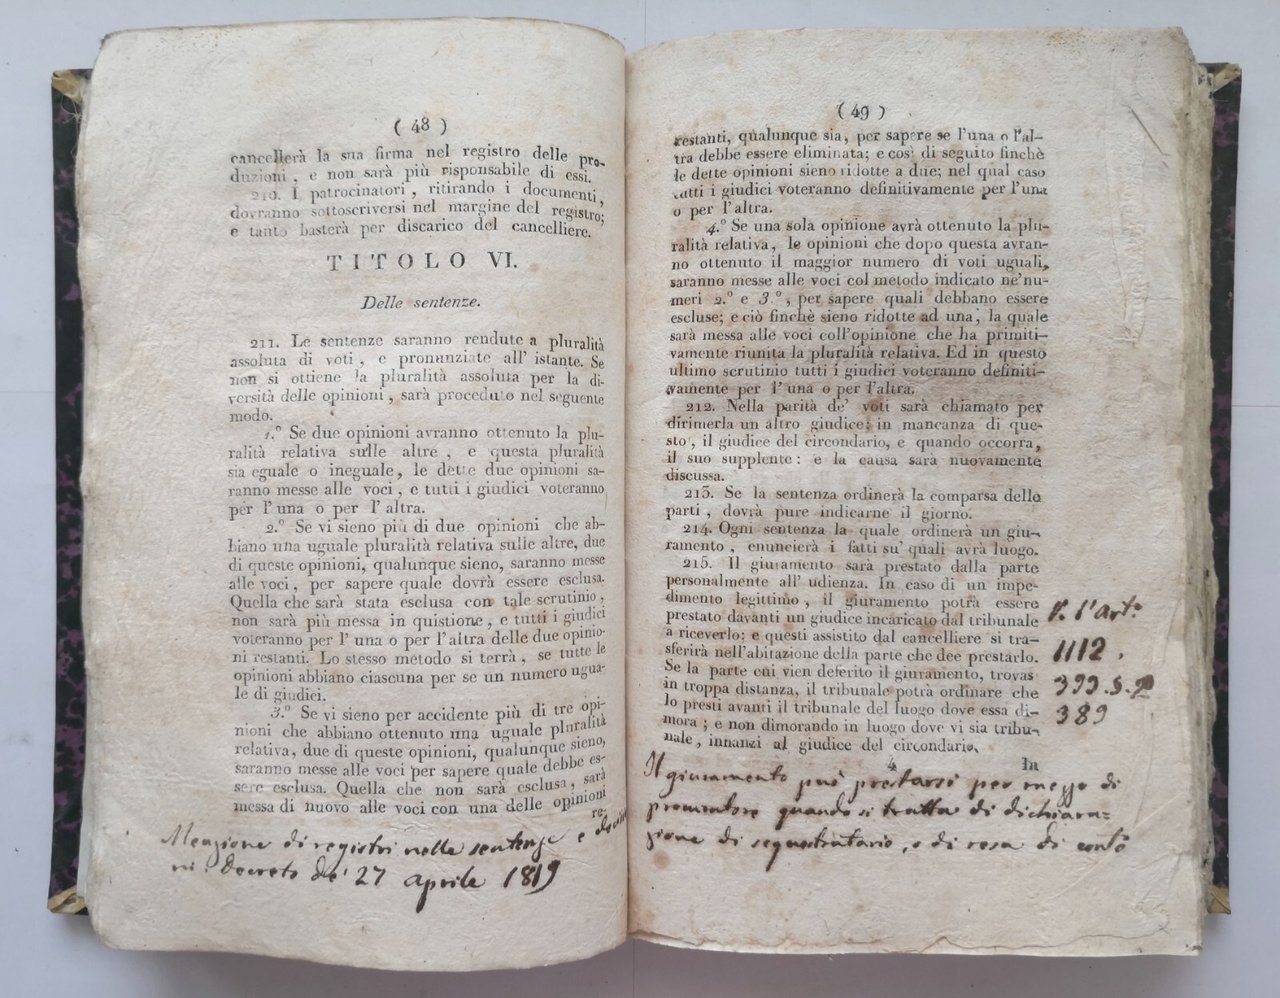 ( 48 )
cancellerà la sua firma nel registro delle pro-
duzioni , e non sarà più risponsabile di essi.
210. I patrocinatori , ritirando i documenti ,
dovranno sottoscriversi nel margine del registro;
e tanto basterà per discarico del cancelliere.
TITOLO VI.
Delle sentenze.
211. Le sentenze saranno rendute a pluralità
assoluta di voti , e pronunziate all' istante. Se
non si ottiene la pluralità assoluta per la di-
versità delle opinioni , sarà proceduto nel seguente
modo.
1.º Se due opinioni avranno ottenuto la plu-
ralità relativa sulle altre , e questa pluralità
sia eguale o ineguale, le dette due opinioni sa-
ranno messe alle voci , e tutti i giudici voteranno
per l' una o per l' altra.
2.º Se vi sieno più di due opinioni che ab-
biano una uguale pluralità relativa sulle altre, due
di queste opinioni, qualunque sieno, saranno messe
alle voci, per sapere quale dovrà essere esclusa.
Quella che sarà stata esclusa con tale scrutinio ,
non sarà più messa in quistione , e tutti i giudici
voteranno per l' una o per l'altra delle due opinio-
ni restanti. Lo stesso metodo si terrà , se tutte le
opinioni abbiano ciascuna per se un numero ugua-
le di giudici.
3.º Se vi sieno per accidente più di tre opi-
nioni che abbiano ottenuto una uguale pluralità
relativa, due di queste opinioni, qualunque sieno,
saranno messe alle voci per sapere quale debbe es-
sere esclusa. Quella che non sarà esclusa , sarà
messa di nuovo alle voci con una delle opinioni
re-
Menzione di registri nelle sentenze e
ni: Decreto de' 27 aprile 1819
( 49 )
restanti, qualunque sia, per sapere se l'una o l'al-
tra debbe essere eliminata; e così di seguito finchè
le dette opinioni sieno ridotte a due; nel qual caso
tutti i giudici voteranno definitivamente per l'una
o per l'altra.
4.º Se una sola opinione avrà ottenuto la plu-
ralità relativa, le opinioni che dopo questa avran-
no ottenuto il maggior numero di voti uguali,
saranno messe alle voci col metodo indicato ne'nu-
meri 2.º e 3.º, per sapere quali debbano essere
escluse; e ciò finchè sieno ridotte ad una, la quale
sarà messa alle voci coll'opinione che ha primiti-
vamente riunita la pluralità relativa. Ed in questo
ultimo scrutinio tutti i giudici voteranno definiti-
vamente per l' una o per l'altra.
212. Nella parità de' voti sarà chiamato per
dirimerla un altro giudice; in mancanza di que-
sto , il giudice del circondario, e quando occorra,
il suo supplente : e la causa sarà nuovamente
discussa.
213. Se la sentenza ordinerà la comparsa delle
parti , dovrà pure indicarne il giorno.
214. Ogni sentenza la quale ordinerà un giu-
ramento , enuncierà i fatti su' quali avrà luogo.
215. Il giuramento sarà prestato dalla parte
personalmente all' udienza. In caso di un impe-
dimento legittimo , il giuramento potrà essere
prestato davanti un giudice incaricato dal tribunale
a riceverlo; e questi assistito dal cancelliere si tra-
sferirà nell'abitazione della parte che dee prestarlo.
Se la parte cui vien deferito il giuramento, trovasi
in troppa distanza, il tribunale potrà ordinare che
lo presti avanti il tribunale del luogo dove essa di-
mora ; e non dimorando in luogo dove vi sia tribu-
nale , innanzi al giudice del circondario.
4 In
V. l'Artº
1112 .
393.S.2
389
Il giuramento può prestarsi per mezzo di
procuratore quando si tratta di dichiara=
zione di sequestratario, o di resa di conto